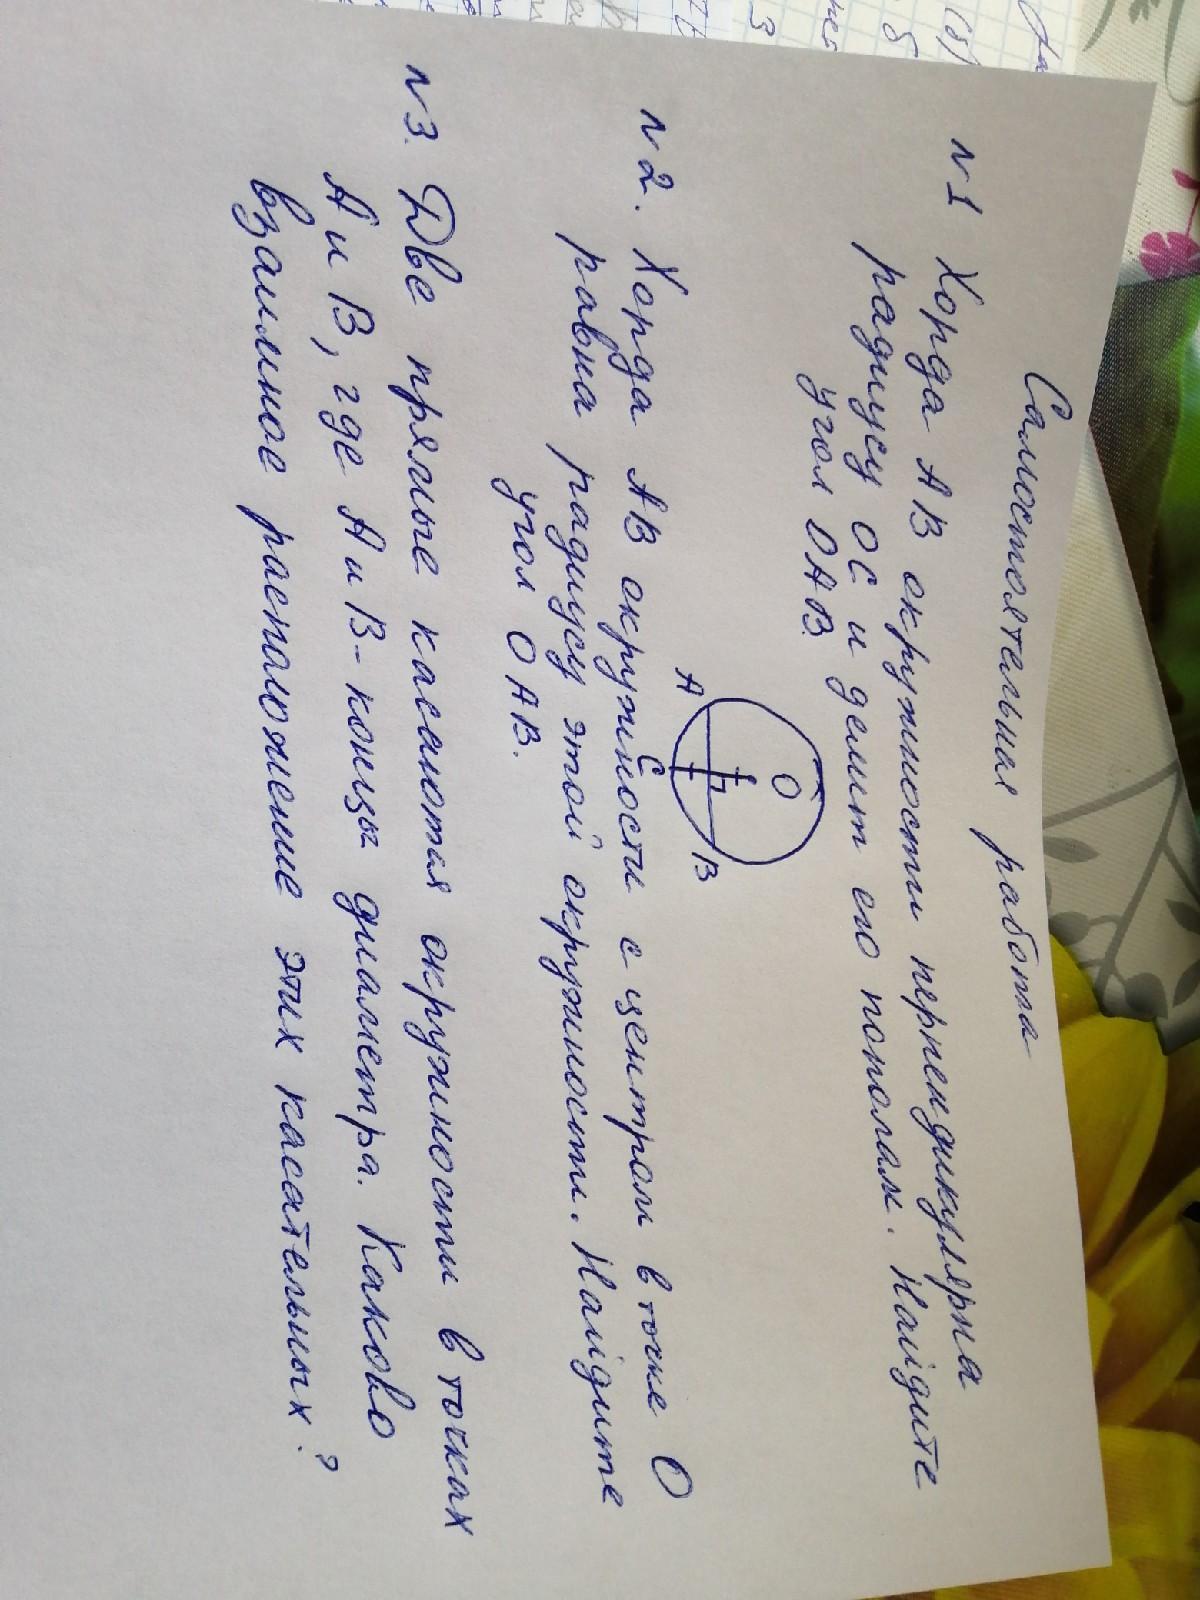 Самостоятельная работа
№1 Хорда АВ окружности перпендикулярна
радиусу ОС и делит его пополам. Найдите
угол ОАВ.
О
А В
С
№2. Хорда АВ окружности с центром в точке О
равна радиусу этой окружности. Найдите
угол ОАВ.
№3. Две прямые касаются окружности в точках
А и В, где А и В - концы диаметра. Каково
взаимное расположение этих касательных?